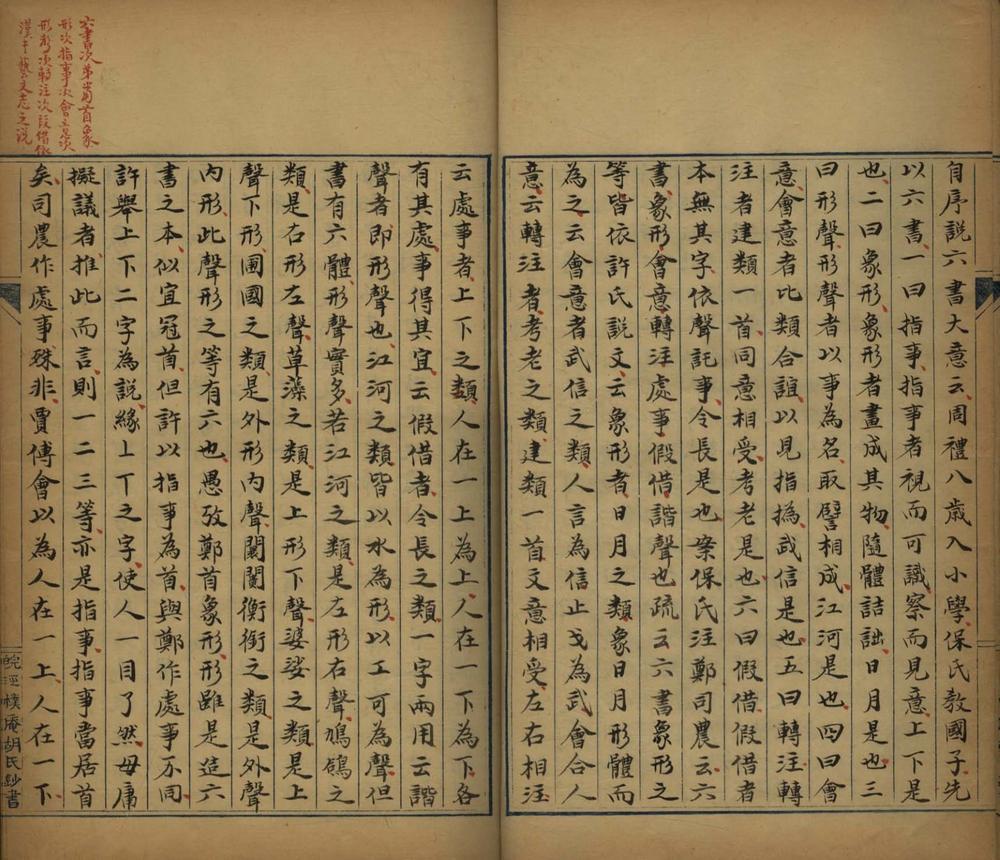 自序説六書大意云周禮八歲入小學保氏教國子先
以六書一曰指事指事者視而可識察而見意上下是
也二曰象形象形者畫成其物隨體詰詘日月是也三
曰形聲形聲者以事為名取譬相成江河是也四曰會
意會意者比類合誼以見指撝武信是也五曰轉注轉
注者建類一首同意相受考老是也六曰假借假借者
本無其字依聲託事令長是也案保氏注鄭司農云六
書象形會意轉注處事假借諧聲也疏云六書象形之
等皆依許氏説文云象形者日月之類象日月形體而
為之云會意者武信之類人言為信止戈為武會合人
意云轉注者考老之類建類一首文意相受左右相注
云處事者上下之類人在一上為上人在一下為下各
有其處事得其宜云假借者令長之類一字兩用云諧
聲者即形聲也江河之類皆以水為形以工可為聲但
書有六體形聲實多若江河之類是左形右聲鳩鴿之
類是右形左聲草藻之類是上形下聲婆娑之類是上
聲下形圃國之類是外形内聲闤闠衡銜之類是外聲
内形此聲形之等有六也愚攷鄭首象形形雖是造六
書之本似宜冠首但許以指事為首與鄭作處事不同
許舉上下二字為説緣丄丅之字使人一目了然毋庸
擬議者推此而言則一二三等亦是指事指事當居首
矣司農作處事殊非賈傅會以為人在一上人在一下
六書次第當首象
形次指事次會意次
形聲次轉注次假借依
漢書藝文志之説
涇樸庵胡氏鈔書